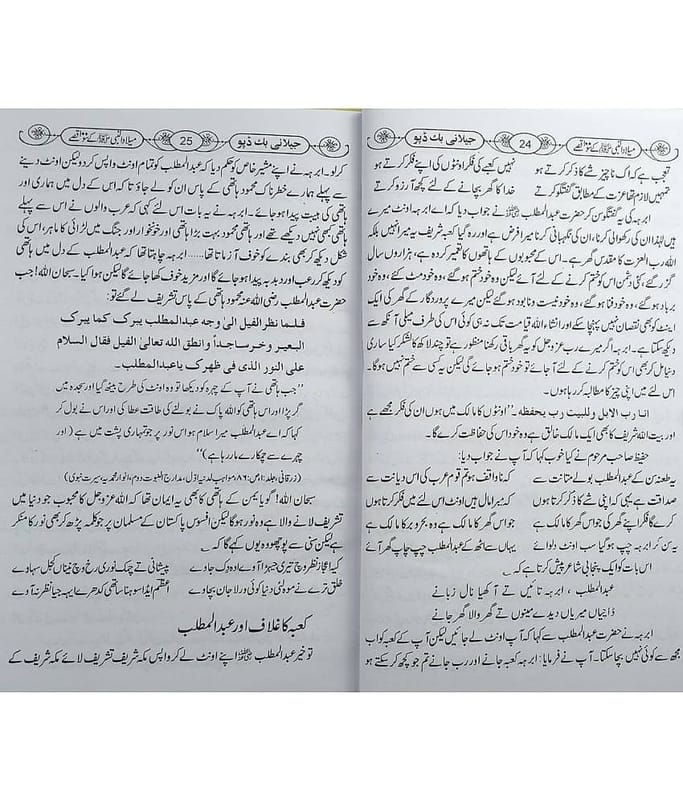 میلاد النبی ﷺ کے سو واقعے
24
جیلانی بک ڈپو
تعجب ہے کہ اک ناچیز شے کا ذکر کرتے ہو نہیں کعبے کی فکر اونٹوں کی اپنے فکر کرتے ہو
تمہیں لازم تھا عزت کے مطابق گفتگو کرتے خدا کا گھر بچانے کے لئے کچھ آرزو کرتے
ابرہہ کی یہ گفتگو سن کر حضرت عبدالمطلب نے جواب دیا کہ اے ابرہہ اونٹ میرے
ہیں لہٰذا ان کی رکھوالی کرنا، ان کی نگہبانی کرنا میرا فرض ہے اور رہ گیا کعبہ شریف یہ میرا نہیں بلکہ
اللہ رب العزت کا مقدس گھر ہے۔ اس کے محبوبوں کے ہاتھوں کا تعمیر کردہ ہے، ہزاروں سال
گزر گئے، کئی دشمن اس کو ختم کرنے کے لئے آئے لیکن وہ خود ختم ہو گئے، وہ خود مٹ گئے، وہ خود
برباد ہو گئے، وہ خود فنا ہو گئے، وہ خود نیست و نابود ہو گئے لیکن میرے پروردگار کے گھر کی ایک
اینٹ کو بھی نقصان نہیں پہنچا سکے اور انشاء اللہ قیامت تک نہ ہی کوئی اس کی طرف میلی آنکھ سے
دیکھ سکتا ہے۔ ابرہہ اگر میرے رب عزوجل کو یہ گھر باقی رکھنا منظور ہے تو چند لاکھ کا لشکر کیا ساری
دنیا مل کر بھی اس کو ختم کرنے کے لئے آ جائے تو خود ختم ہو جائے گی لیکن یہ کسی سے ختم نہیں ہوگا۔
اس لئے میں اپنی چیز کا مطالبہ کر رہا ہوں۔
انا رب الابل وللبیت رب یحفظہ۔ ’’اونٹوں کا مالک میں ہوں ان کی فکر مجھے ہے
اور بیت اللہ شریف کا بھی ایک مالک خالق ہے وہ خود اس کی حفاظت کرے گا۔
حفیظ صاحب مرحوم نے کیا خوب کہا کہ آپ نے جواب دیا:
یہ طعنہ سن کے عبدالمطلب بولے متانت سے کہ ناواقف ہو تم قوم عرب کی اس دیانت سے
صداقت ہے یہی کہ اپنی شے کا ذکر کرتا ہوں کہ میرا مال ہیں اونٹ اس لئے میں فکر کرتا ہوں
کرے گا فکر اپنے گھر کی جو اس گھر کا مالک ہے جو اس گھر کا مالک ہے وہ بحر و بر کا مالک ہے
یہ سن کر ابرہہ چپ ہو گیا سب اونٹ دلوائے یہاں سے اٹھ کے عبدالمطلب چپ چاپ گھر آئے
اس بات کو ایک پنجابی شاعر پیش کرتا ہے کہ۔
عبدالمطلب ، ابرہہ تائیں تے آکھیا نال زبانے
ڈاچیاں میریاں دیدے مینوں تے گھر والا گھر جانے
ابرہہ نے حضرت عبدالمطلب سے کہا کہ آپ اونٹ لے جائیں لیکن آپ کے کعبہ کو اب
مجھ سے کوئی نہیں بچا سکتا۔ آپ نے فرمایا: ابرہہ کعبہ جانے اور رب جانے تم جو کچھ کر سکتے ہو
میلاد النبی ﷺ کے سو واقعے
25
جیلانی بک ڈپو
کر لو۔ ابرہہ نے اپنے مشیر خاص کو حکم دیا کہ عبدالمطلب کو تمام اونٹ واپس کر دو لیکن اونٹ دینے
سے پہلے ہمارے خطرناک محمود ہاتھی کے پاس ان کو لے جاؤ تاکہ اس کے دل میں ہماری اور
ہاتھی کی ہیبت پیدا ہو جائے۔ ابرہہ نے یہ بات اس لئے کہی کہ عرب والوں نے اس سے پہلے
ہاتھی کبھی نہیں دیکھے تھے اور ہاتھی محمود بہت بڑا ہاتھی اور خونخوار اور جنگ میں لڑائی کا ماہر، اس کی
شکل دیکھ کر بھی بندے کو خوف آتا تھا ..... ابرہہ چاہتا تھا کہ عبدالمطلب کے دل میں ہاتھی
کو دیکھ کر رعب اور دبدبہ پیدا ہو جائے گا اور مزید خوف کھا جائے گا لیکن ہوا کیا۔ سبحان اللہ! جب
حضرت عبدالمطلب رضی اللہ عنہ محمود ہاتھی کے پاس تشریف لے گئے تو:
فلما نظر الفیل الیٰ وجہ عبدالمطلب یبرک کما یبرک
البعیر وخر ساجداً وانطق اللہ تعالیٰ الفیل فقال السلام
علی النور الذی فی ظھرک یاعبدالمطلب۔
’’جب ہاتھی نے آپ کے چہرہ کو دیکھا تو وہ اونٹ کی طرح بیٹھ گیا اور سجدہ میں
گر پڑا اور اس ہاتھی کو اللہ پاک نے بولنے کی طاقت عطا کی اور اس نے بول کر
کہا کہ اے عبدالمطلب میرا سلام ہو اس نور پر جو تمہاری پشت میں ہے (اور
چہرے سے چمکارے مار رہا ہے)‘‘
(زرقانی جلد۱، ص۸۶، مواہب لدنیہ اوّل، مدارج النبوت دوم، انوار محمدیہ، سیرت نبوی)
سبحان اللہ! گویا یمن کے ہاتھی کا بھی یہ ایمان تھا کہ اللہ عزوجل کا محبوب جو دنیا میں
تشریف لانے والا ہے وہ نور ہوگا لیکن افسوس پاکستان کے مسلمان پر جو کلمہ پڑھ کر بھی نور کا منکر
ہے لیکن سنی سے پوچھو وہ یوں کہے گا کہ۔
کیہا اعجاز نظر وچ تیری جہڑا آوے اوہ دک جاوے پیشانی تے چمک نوری رخ وچ نیناں کجل سہاوے
خلق ترے نے موہ لئی دنیا کوئی ور لا جان بچاوے اعظم ایڈا سوہنا ساتھی کدھرے ایہہ جیا نظر نہ آوے
کعبہ کا غلاف اور عبدالمطلب
تو خیر عبدالمطلب اپنے اونٹ لے کر واپس مکہ شریف تشریف لائے مکہ شریف کے